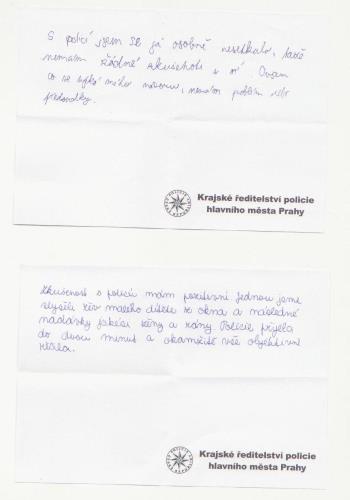 S policí jsem se já osobně nesetkala, takže
nemám žádné zkušenosti s ní
co se týká mého názoru, nemám
předsudky.
Krajské ředitelství policie
hlavního města Prahy
Zkušenost s policií mám pozitivní jednou jsme
slyšeli řev malého dítěte ze okna a následné
nadávky jakési ženy a rány Policie přijela
do dvou minut a okamžitě vše objektivně
řešila.
Krajské ředitelství policie
hlavního města Prahy